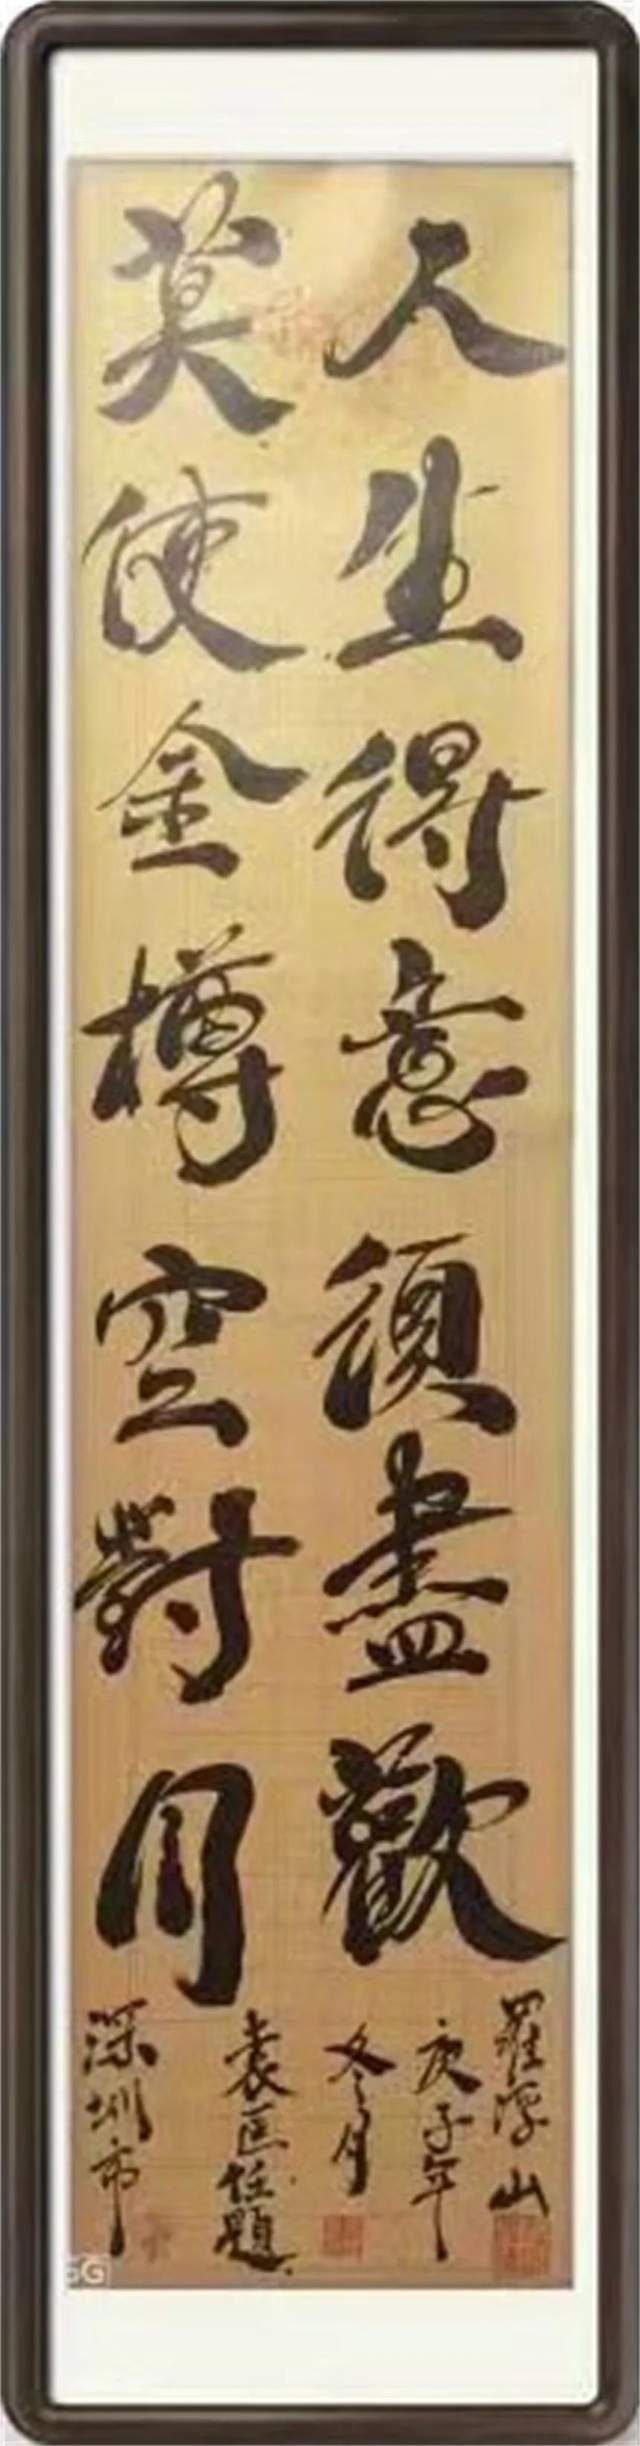 人生得意須盡歡
莫使金樽空對月
羅浮山
庚子年
冬月
袁匡任題
深圳市